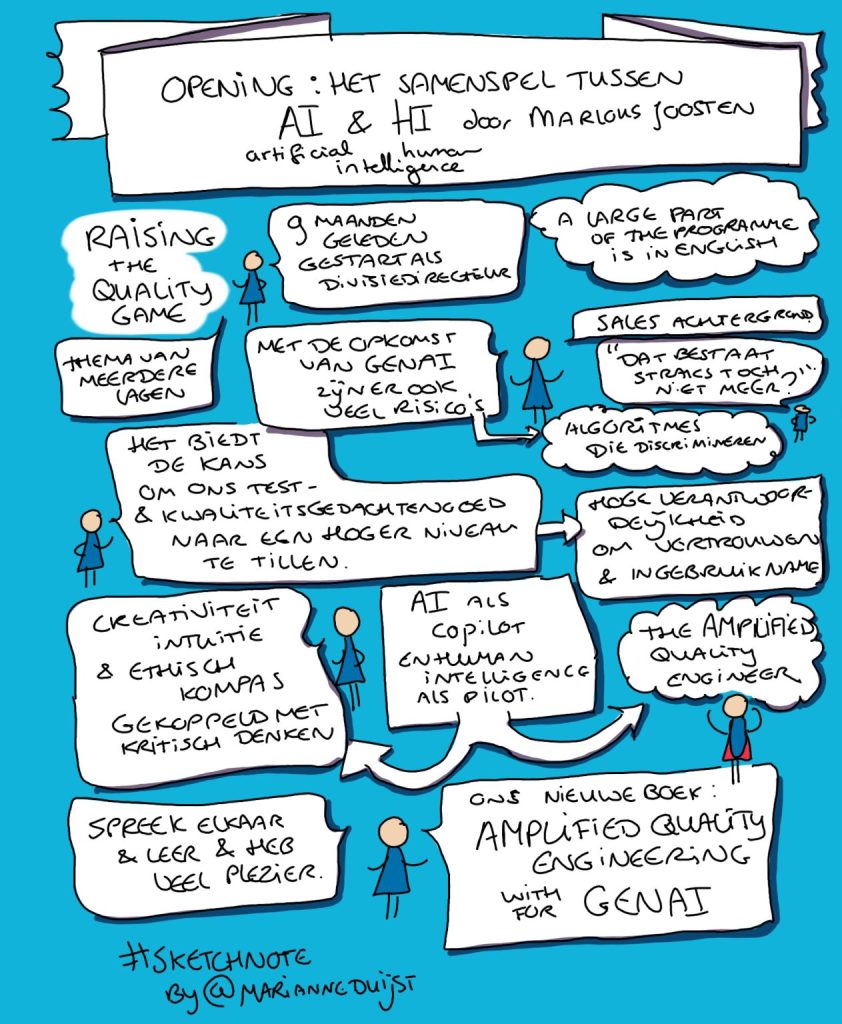 OPENING : HET SAMENSPEL TUSSEN
AI & HI door MARLOUS JOOSTEN
artificial human
intelligence
RAISING
THE
QUALITY
GAME
9 MAANDEN
GELEDEN
GESTART ALS
DIVISIEDIRECTEUR
A LARGE PART
OF THE PROGRAMME
IS IN ENGLISH
THEMA VAN
MEERDERE
LAGEN
MET DE OPKOMST
VAN GENAI
ZIJN ER OOK
VEEL RISICO'S
SALES ACHTERGROND
"DAT BESTAAT
STRAKS TOCH
NIET MEER?"
ALGORITMES
DIE DISCRIMINEREN
HET BIEDT
DE KANS
OM ONS TEST-
& KWALITEITSGEDACHTENGOED
NAAR EEN HOGER NIVEAU
TE TILLEN.
HOGE VERANTWOOR-
DELIJKHEID
OM VERTROUWEN
& INGEBRUIKNAME
CREATIVITEIT
INTUITIE
& ETHISCH
KOMPAS
GEKOPPELD MET
KRITISCH DENKEN
AI ALS
COPILOT
EN HUMAN
INTELLIGENCE
ALS PILOT.
THE AMPLIFIED
QUALITY
ENGINEER
SPREEK ELKAAR
& LEER & HEB
VEEL PLEZIER.
ONS NIEUWE BOEK:
AMPLIFIED QUALITY
ENGINEERING
WITH
FOR GENAI
#SKETCHNOTE
BY @MARIANNEDUIJST